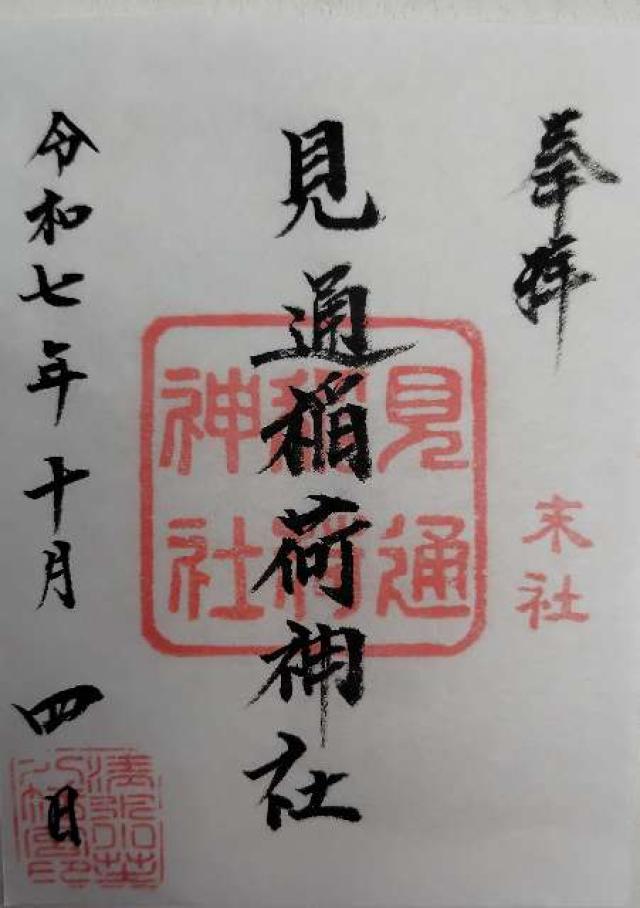 奉拝
末社
見通稲荷神社
見通
稲荷
神社
令和七年十月四日